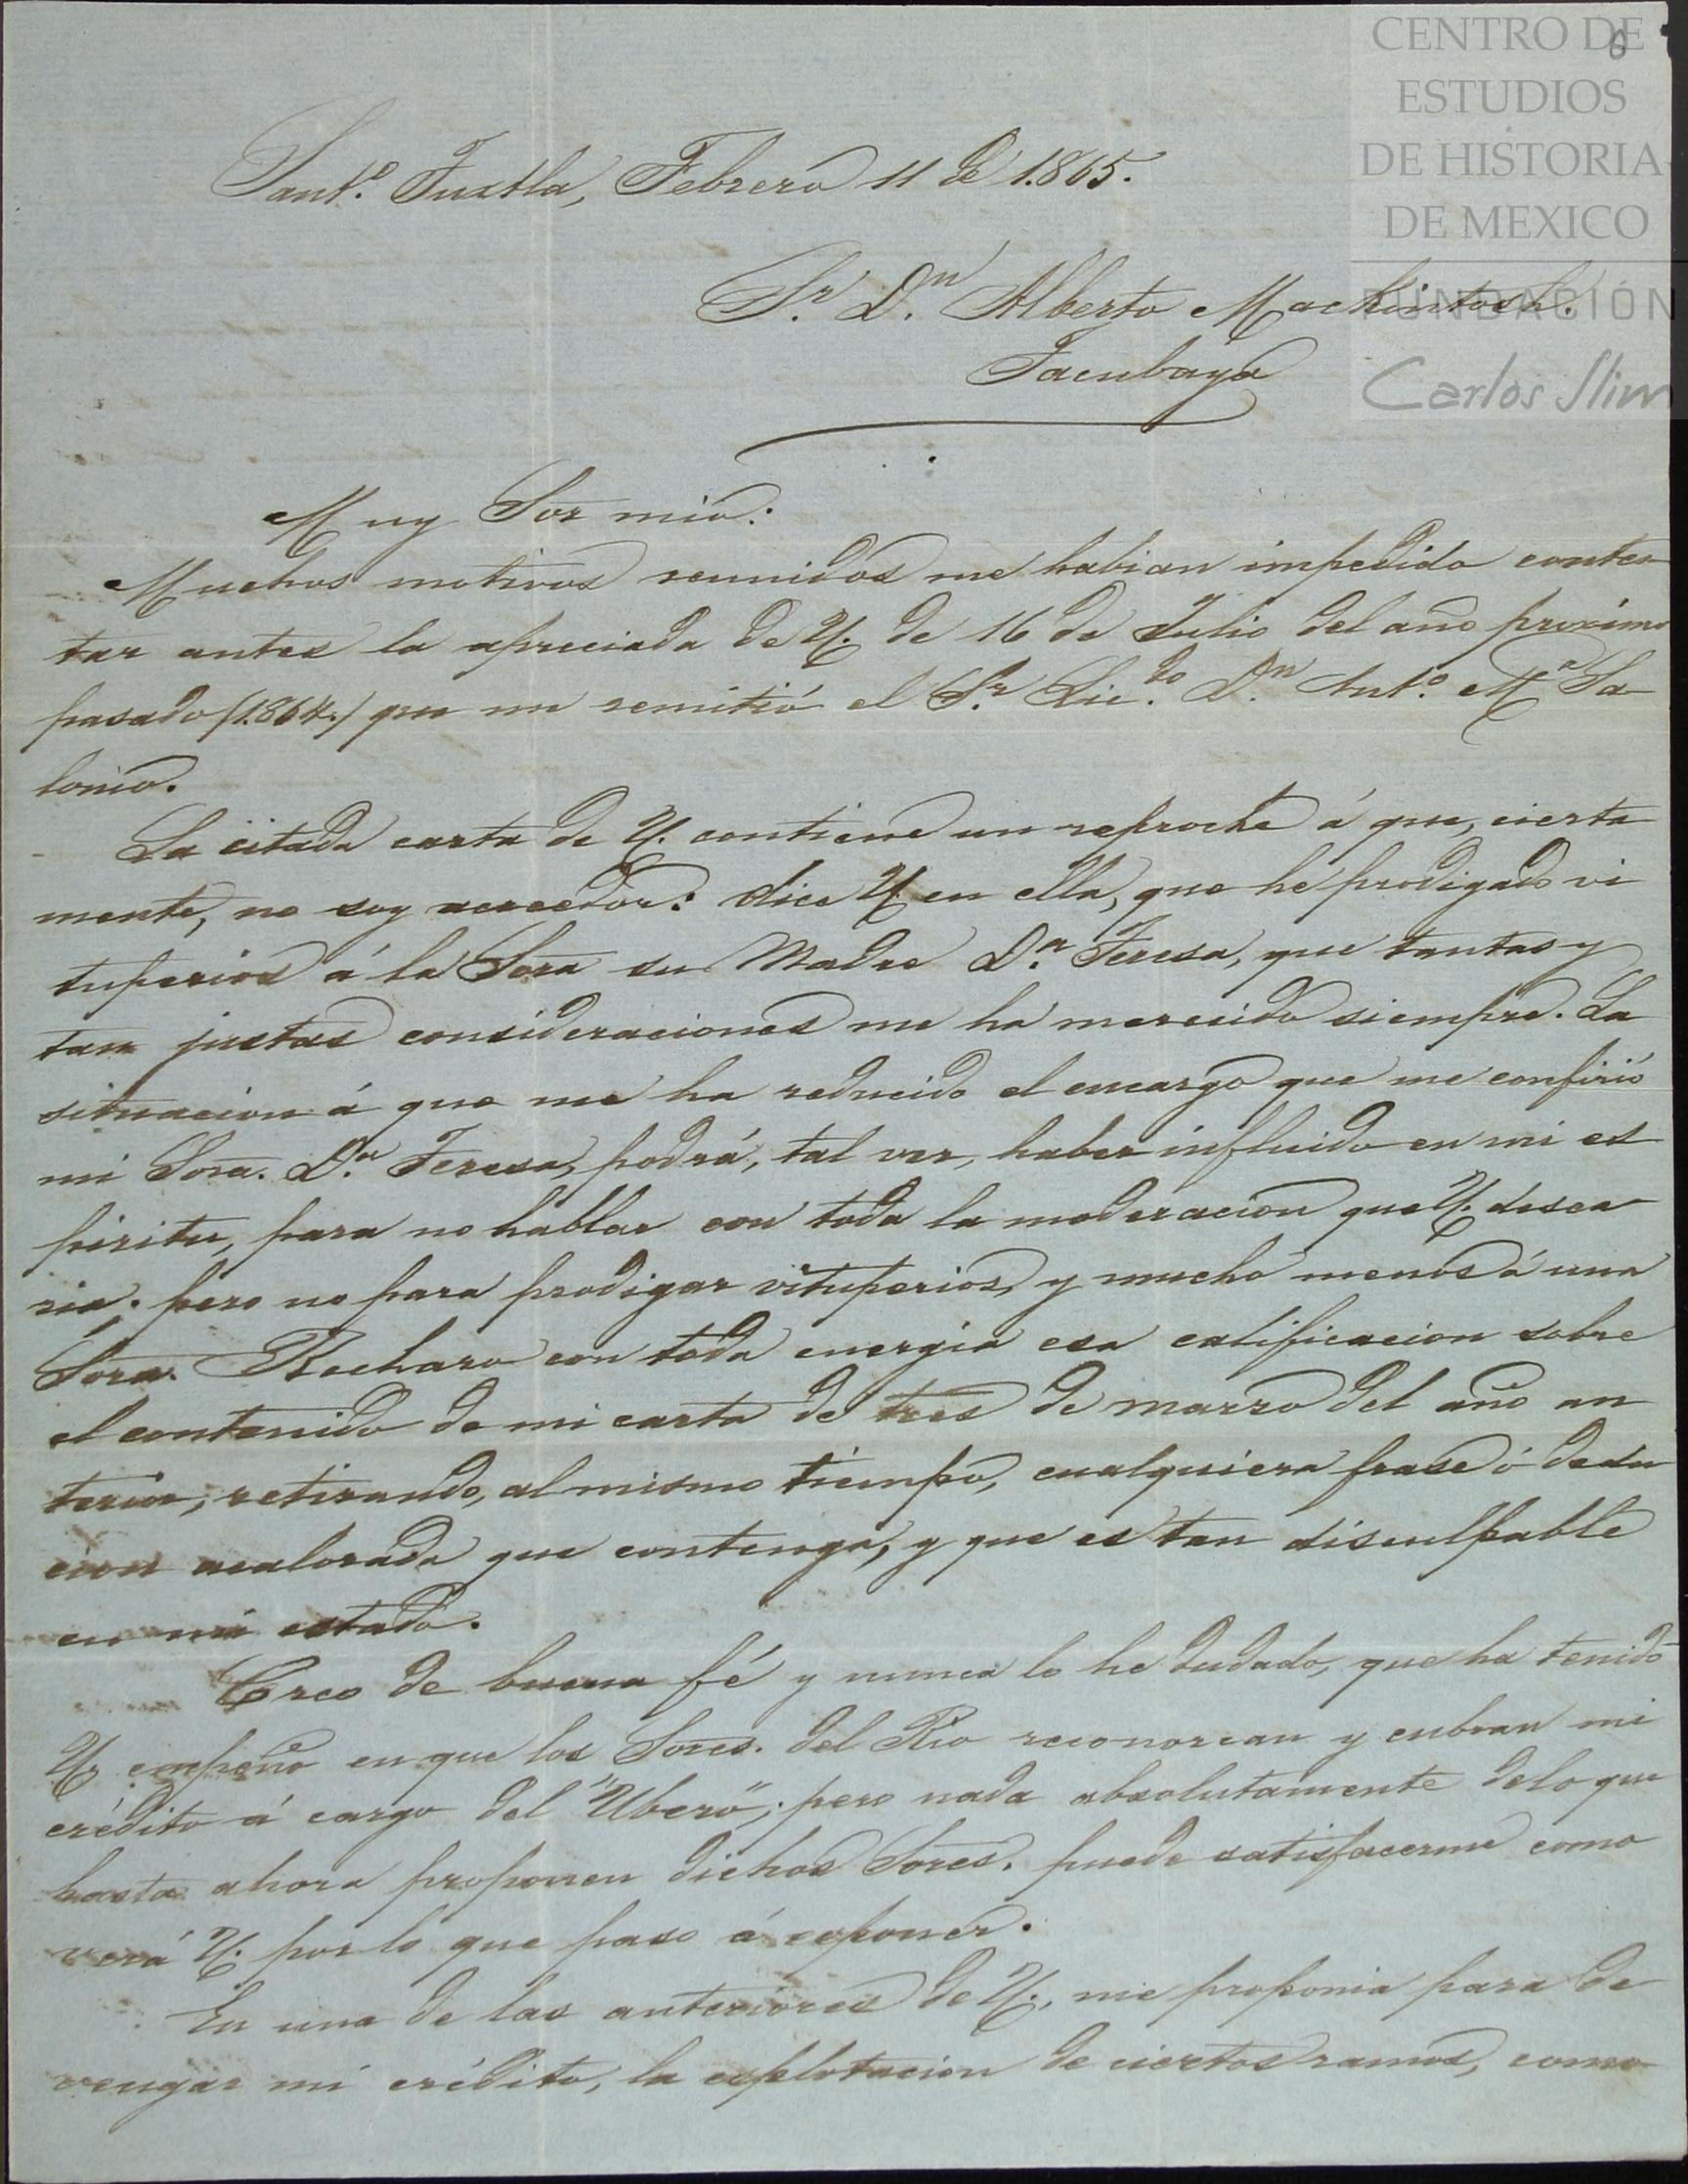 CENTRO DE
ESTUDIOS
DE HISTORIA
DE MEXICO
FUNDACIÓN
Carlos Slim
6
Sant.º Tuxtla, Febrero 11 de 1865.
S.r D.n Alberto Mackintosh.
Tacubaya
Muy Sor mio:
Muchos motivos reunidos me habian impedido contes
tar antes la apreciada de V. de 16 de Julio del año proximo
pasado (1864.) que me remitió el S.r Lic.do D.n Ant.º M.a Sa-
lonio.
La citada carta de V. contiene un reproche á que, cierta
mente, no soy acreedor: dice V. en ella, que he prodigado vi
tuperios á la Sora su Madre D.a Teresa, que tantas y
tan justas consideraciones me ha merecido siempre. La
situacion á que me ha reducido el encargo que me confirió
mi Sora. D.a Teresa, podrá, tal vez, haber influido en mi es
piritu, para no hablar con toda la moderacion que V. desea
ria. pero no para prodigar vituperios, y mucho menos á una
Sora. Rechazo con toda energia esa calificacion sobre
el contenido de mi carta de tres de marzo del año an
terior, retirando, al mismo tiempo, cualquiera frase ó dedu
cion acalorada que contenga, y que es tan disculpable
en mi estado.
Creo de buena fé y nunca lo he dudado, que ha tenido
V. empeño en que los Sores. del Rio reconozcan y cubran mi
crédito á cargo del "Ubero"; pero nada absolutamente de lo que
hasta ahora proponen dichos Sores. puede satisfacerme como
verá V. por lo que paso á exponer.
En una de las anteriores de V., me proponia para de
vengar mi crédito, la esplotacion de ciertos ramos, como